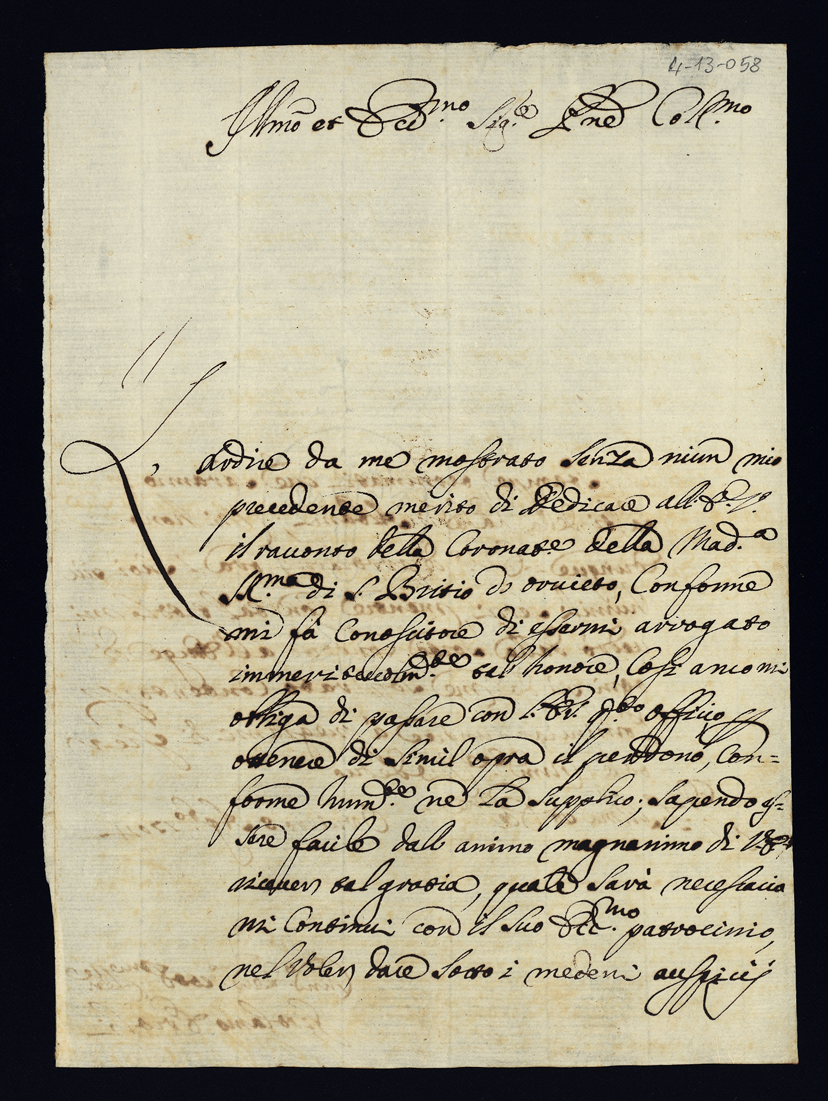 4-13-058
Ill.mo et Ecc.mo Sig.re Pne Col.mo
L'ardire da me mostrato senza niun mio
precedente merito di dedicare all' E. V.
il racconto della Coronat.e della Mad.a
SS.ma di S. Britio di Orvieto, Conforme
mi fà Conoscitore di essermi arrogato
tal honore, Così anco mi
obliga di passare con l' E. V. q.sto officio p
ottenere di simil opra il perdono, Con=
forme hum.te ne La supplico; sapendo es=
sere facile dall animo magnanimo di V. E.
ricever tal gratia, quale sarà necessaria
mi Continui con il suo Ecc.mo patrocinio,
nel voler dare sotto i medemi auspicij